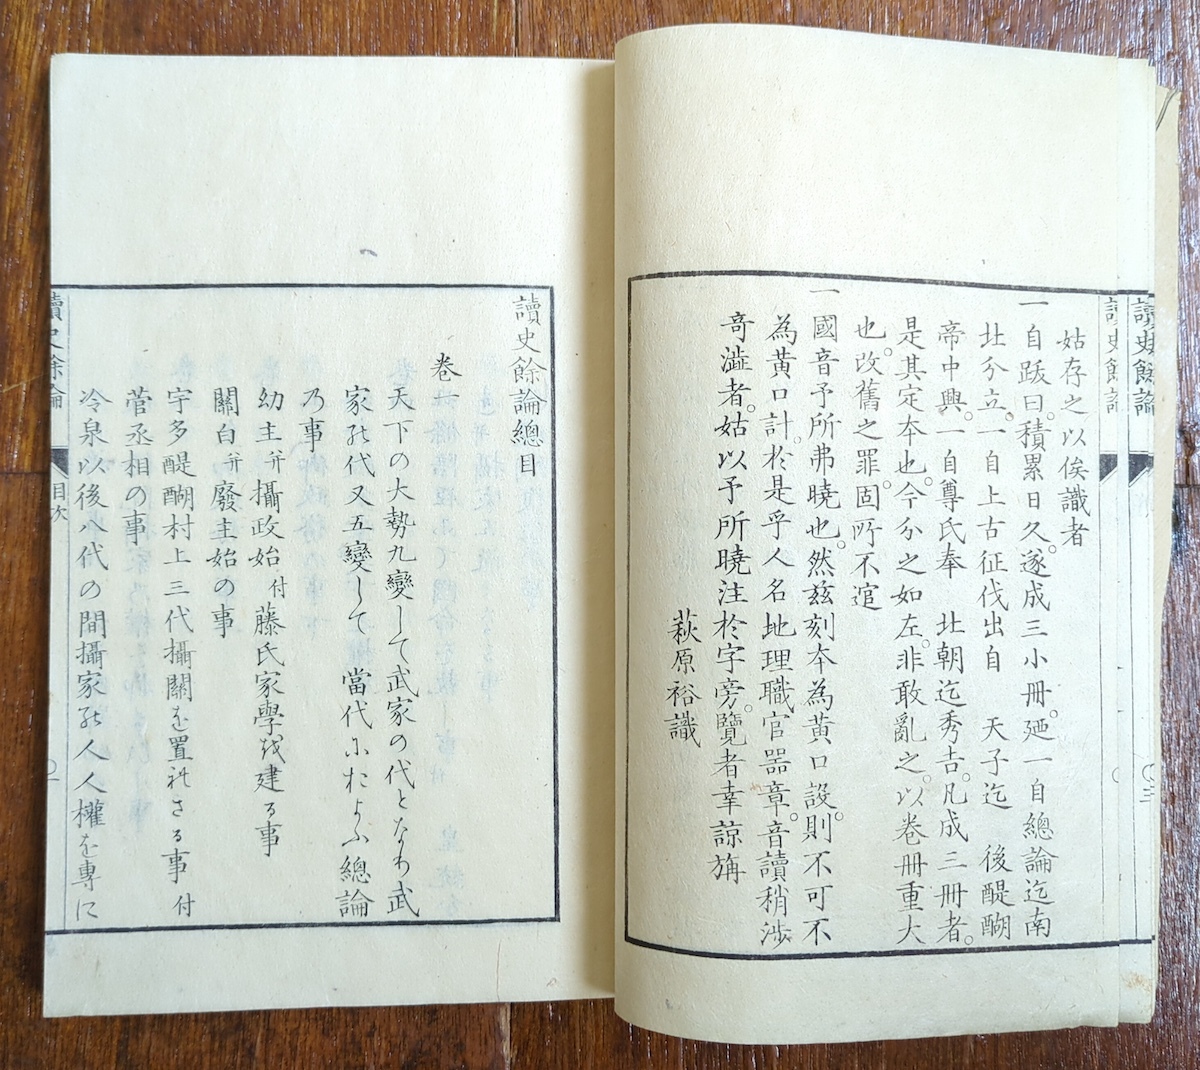 姑存之以俟識者
一自跋曰。積累日久。遂成三小冊。廼一自總論迄南
北分立。一自上古征伐出自　天子迄　後醍醐
帝中興。一自尊氏奉　北朝迄秀吉。凡成三冊者。
是其定本也。今分之如左。非敢亂之。以卷冊重大
也。改舊之罪。固所不逭
一國音予所弗曉也。然玆刻本為黃口設。則不可不
為黃口計。於是乎人名地理職官器章。音讀稍涉
奇澁者。姑以予所曉注於字旁。覽者幸諒旃
萩原裕識
讀史餘論
讀史餘論總目
卷一
天下の大勢九變して武家の代となり武
家の代又五變して當代におよふ總論
乃事
幼主并攝政始付藤氏家學を建る事
關白并廢主始の事
宇多醍醐村上三代攝關を置れさる事付
菅丞相の事
冷泉以後八代の間攝家の人人權を專に
讀史餘論
目次